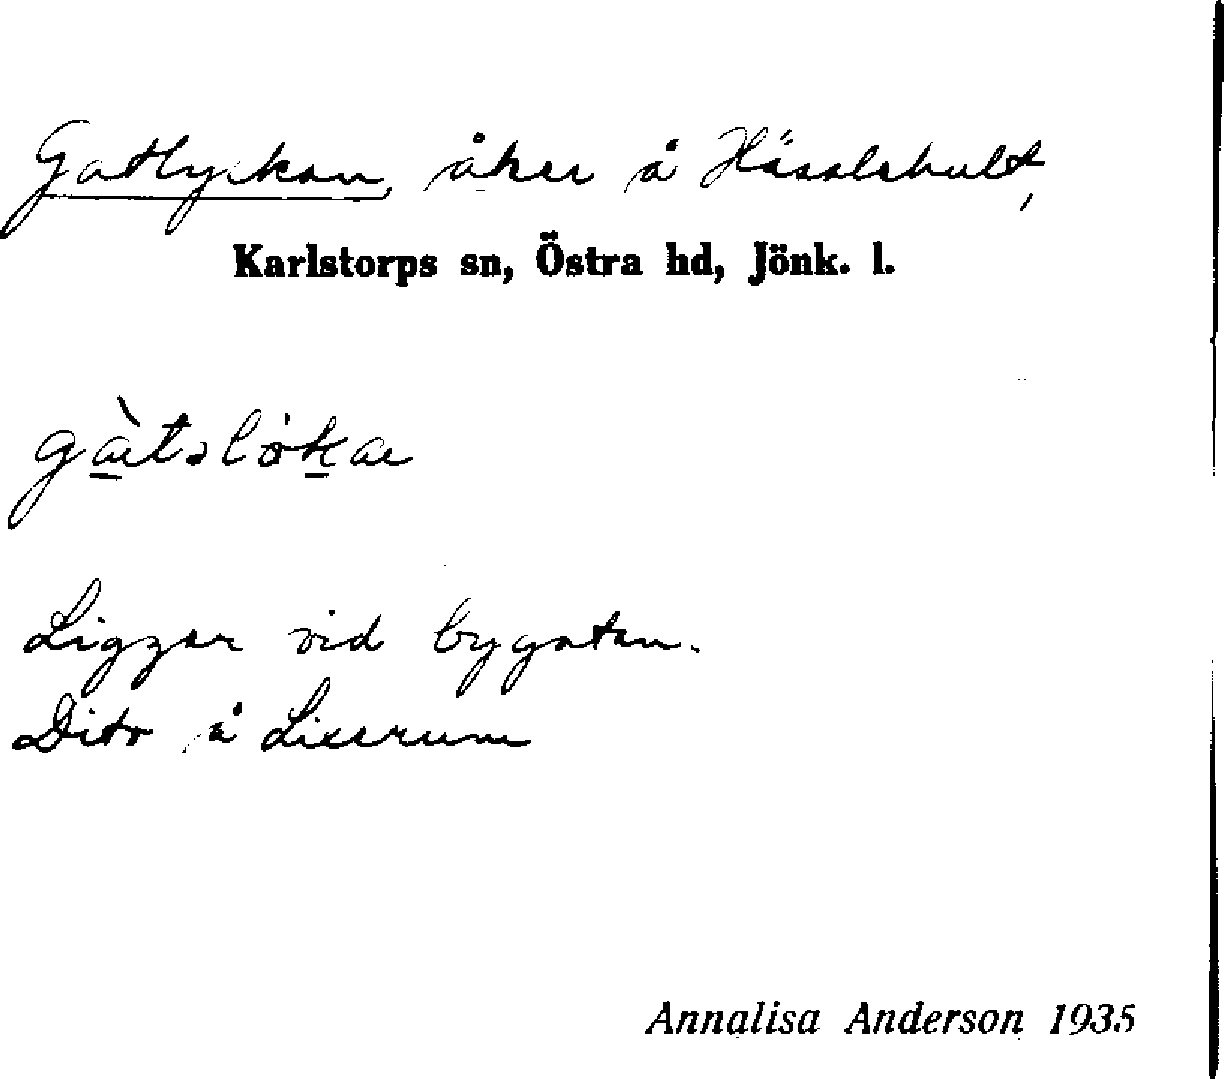 Gatlyckan, åker å Hässlehult,
Karlstorps sn, Östra hd, Jönk. l.
Ligger vid bygatan.
Dito å
Annalisa Anderson 1935